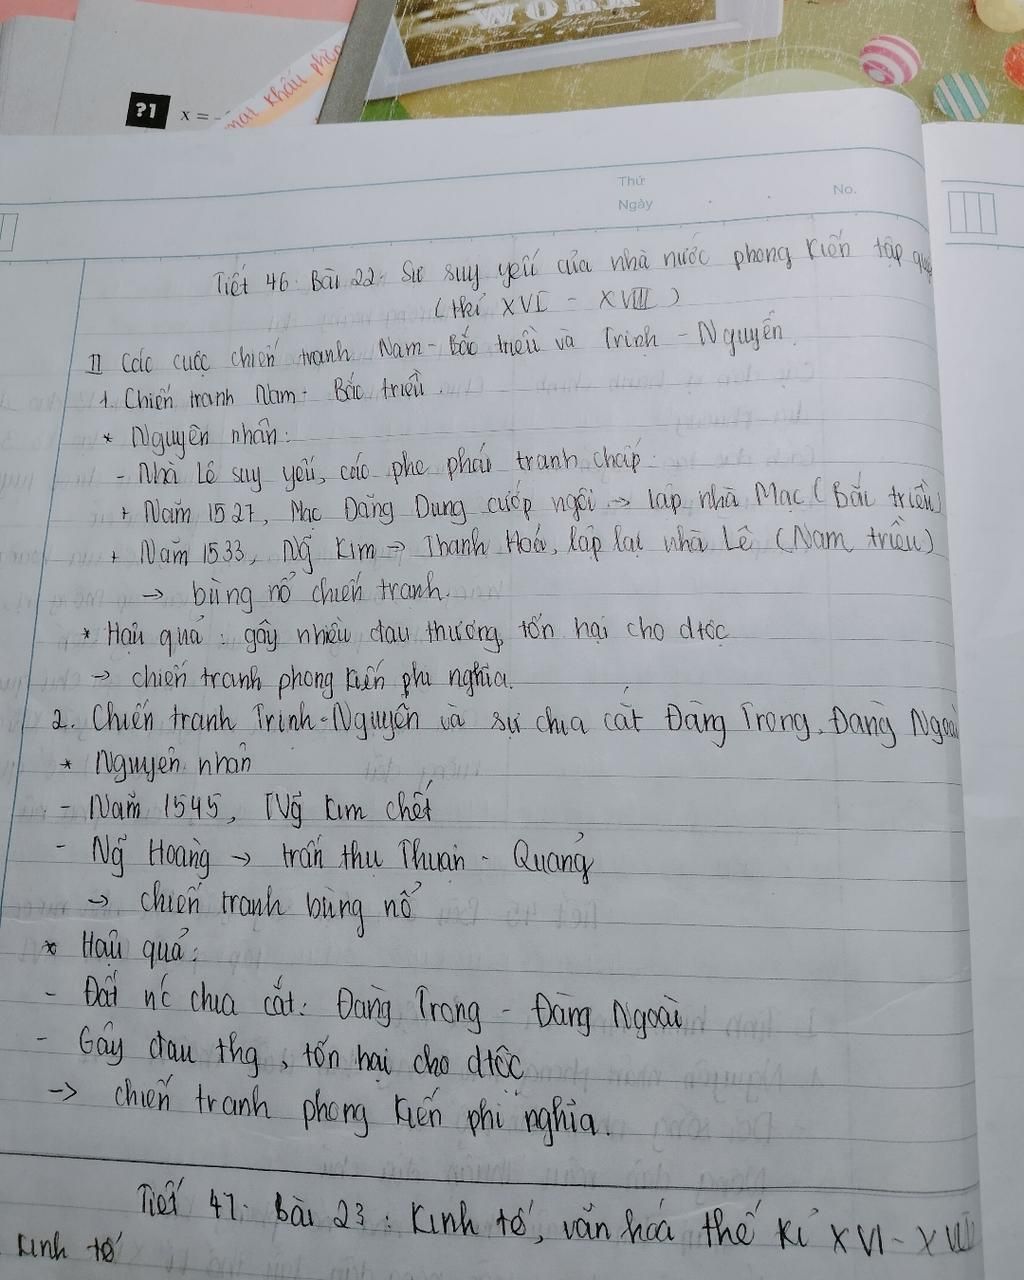 WORK
?1 x = -
mạt khấu phần
Thứ
Ngày
No.
Tiết 46: Bài 22: Sự suy yếu của nhà nước phong kiến tập quy
(thế XVI - XVIII)
II Các cuộc chiến tranh Nam - Bắc triều và Trịnh - Nguyễn.
1. Chiến tranh Nam - Bắc triều.
* Nguyên nhân:
- Nhà Lê suy yếu, các phe phái tranh chấp.
+ Năm 1527, Mạc Đăng Dung cướp ngôi → lập nhà Mạc (Bắc triều)
+ Năm 1533, Ng̃ Kim → Thanh Hoá, lập lại nhà Lê (Nam triều)
→ bùng nổ chiến tranh.
* Hậu quả: gây nhiều đau thương, tổn hại cho dtộc
→ chiến tranh phong kiến phi nghĩa.
2. Chiến tranh Trịnh - Nguyễn và sự chia cắt Đàng Trong, Đàng Ngoài
* Nguyên nhân
- Năm 1545, Ng̃ Kim chết
- Ng̃ Hoàng → trấn thủ Thuận - Quảng
→ chiến tranh bùng nổ
* Hậu quả:
- Đất nc chia cắt: Đàng Trong - Đàng Ngoài
- Gây đau thg, tổn hại cho dtộc
→ chiến tranh phong kiến phi nghĩa.
Tiết 47: Bài 23: Kinh tế, văn hoá thế kỉ XVI - XVIII
Kinh tế